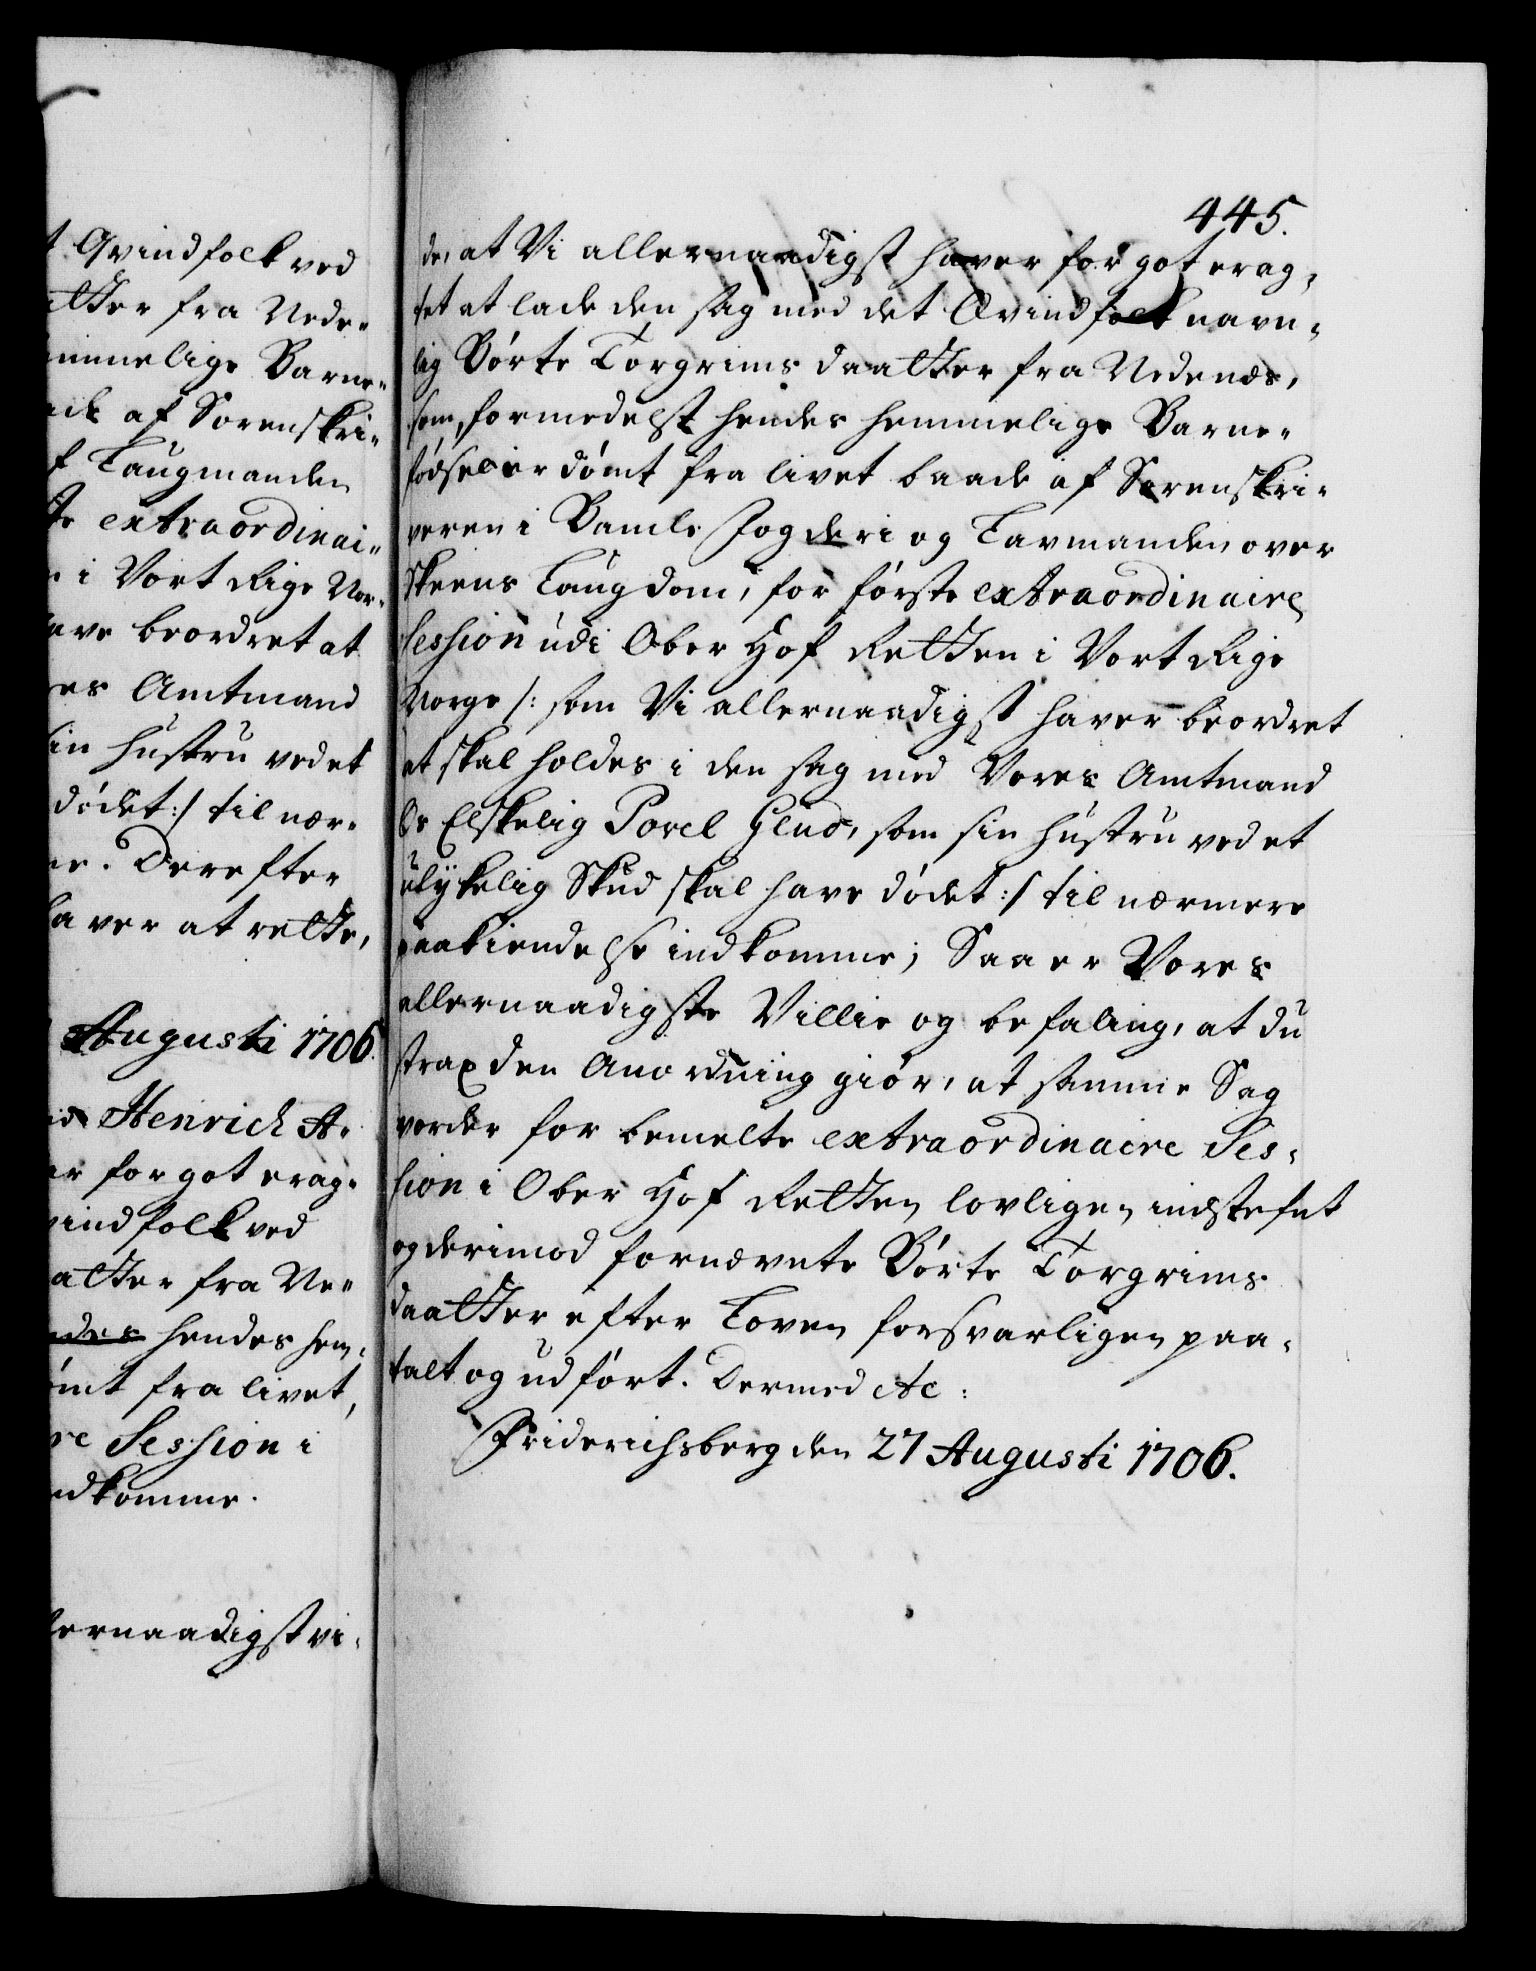 t Qvindfolk ved
atter fra Nede-
emmelige Barne-
ade af Sorenskri-
f Laugmanden
te extraordinai-
e i Vort Rige Nor-
ave beordret at
res Amtmand
sin hustru ved et
dödet :/ til nær-
ne. Derefter
haver at rette,
Augusti 1706.
Henrich A-
er for got erag-
vindfolk ved
atter fra Ne-
ndes hendes hem-
ömt fra livet,
re Session i
ndkomme.
lernaadigst vi-
445.
de, at Vi allernaadigst haver for got erag-
tet at lade den sag med det Qvindfolk navn-
lig Börte Torgrims daatter fra Nedenes,
som, formedelst hendes hemmelige Barne-
födsel er dömt fra livet baade af Sorenskri-
veren i Bamle Fogderi og Lavmanden over
Skeens Laugdom, for förste extraordinaire
Session udi Ober Hof Retten i Vort Rige
Norge /: som Vi allernaadigst haver beordret
at skal holdes i den sag med Vores Amtmand
Os Elskelig Povel Glud, som sin hustru ved et
ulykelig Skud skal have dödet :/ til nærmere
paakiendelse indkomme; Saa er Vores
allernaadigste Villie og befaling, at du
strax den Anordning giör, at samme Sag
vorder for bemelte extraordinaire Ses-
sion i Ober Hof Retten lovligen indstefnt
og derimod fornævnte Börte Torgrims
daatter efter Loven forsvarligen paa-
talt og udfört. Dermed etc:
Friderichsberg den 27 Augusti 1706.